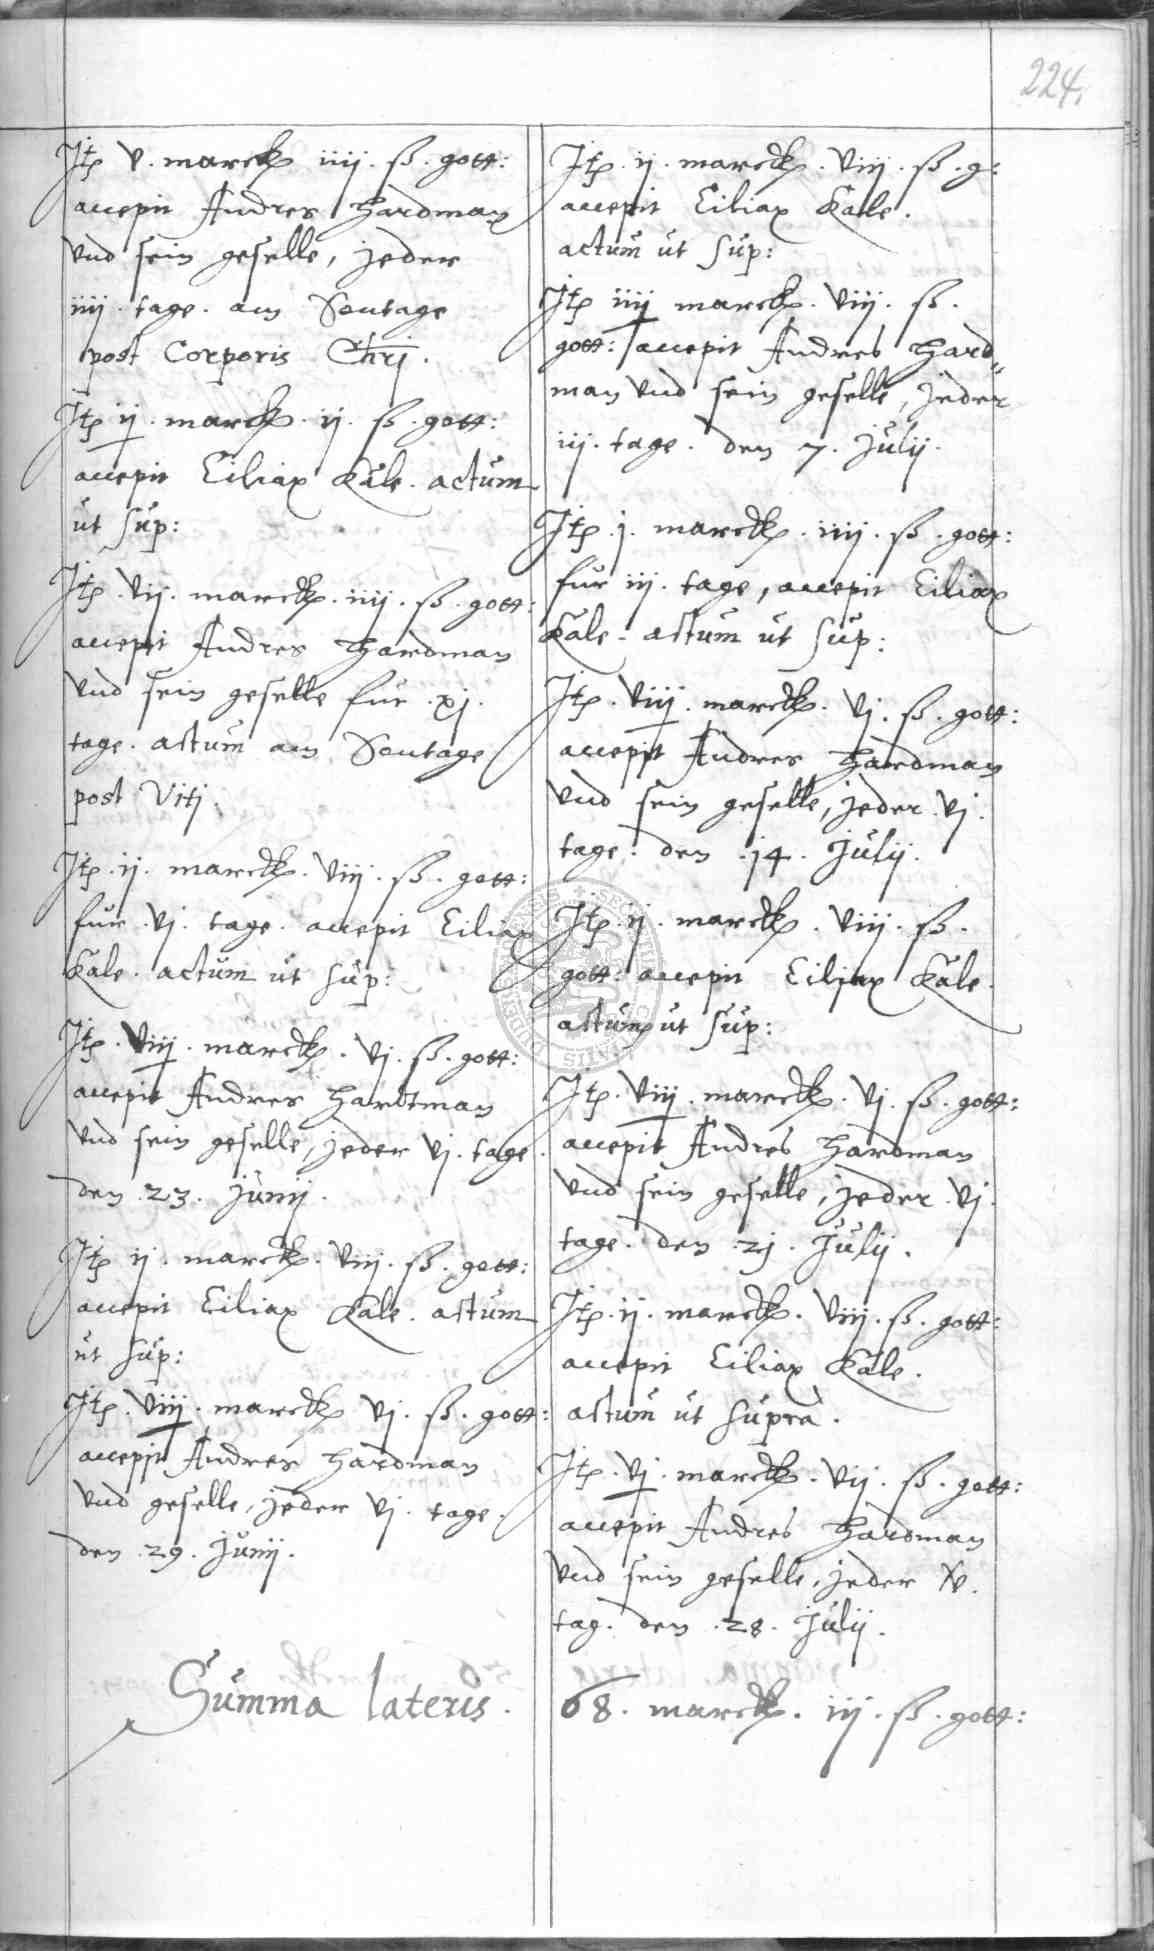 224.
Itē v. marck iiij. ß. gott:
accepit Andres Hardman
vnd sein geselle, jeder
iiij. tage. am Sontage
post Corporis Chrj.
Itē ij. marck. ij. ß. gott:
accepit Ciliax Kale. actum
ut sup:
Itē. vij. marck. iiij. ß. gott:
accepit Andres Hardman
vnd sein geselle fur .xj.
tage. actum am Sontage
post Vitj.
Itē. ij. marck. viij. ß. gott:
fur vj. tage. accepit Ciliax
Kale. actum ut sup:
Itē. viij. marck. vj. ß. gott:
accepit Andres Hardtman
vnd sein geselle, jeder vj. tage.
den .23. Junij.
Itē ij. marck. viij. ß. gott:
accepit Ciliax Kale. actum
ut sup:
Itē. viij. marck vj. ß. gott:
accepit Andres Hardman
vnd geselle, jeder vj. tage.
den .29. Junij.
Itē. ij. marck. viij. ß. g:
accepit Ciliax Kale.
actum ut sup:
Itē iiij marck. viij. ß.
gott: accepit Andres Hard„
man vnd sein geselle, jeder
iij. tage. den 7. Julij.
Itē. j. marck. iiij. ß. gott:
fur iij. tage, accepit Ciliax
Kale. actum ut sup:
Itē. viij. marck. vj. ß. gott:
accepit Andres Hardman
vnd sein geselle, jeder .vj.
tage. den .14. Julij.
Itē. ij. marck. viij. ß.
gott: accepit Ciliax Kale.
actum ut sup:
Itē. viij. marck. vj. ß. gott:
accepit Andres Hardman
vnd sein geselle, jeder .vj.
tage. den .21. Julij.
Itē. ij. marck. viij. ß. gott:
accepit Ciliax Kale.
actum ut supra.
Itē. vj. marck. vij. ß. gott:
accepit Andres Hardman
vnd sein geselle, jeder v.
tag. den .28. Julij.
Summa lateris. 68. marck. iij. ß. gott: